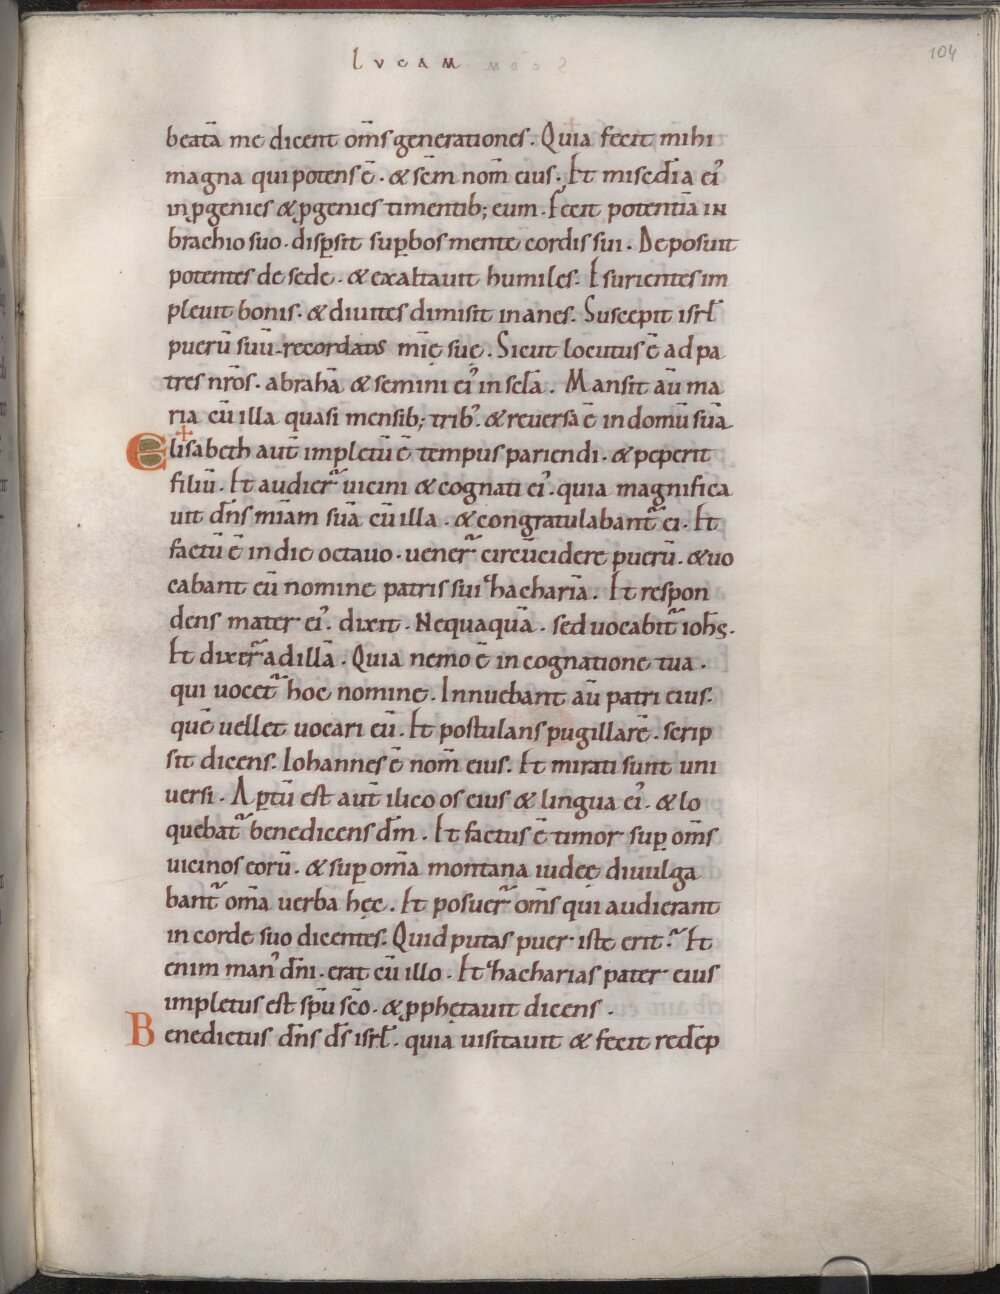 LVCAM
104
beatā me dicent om̄s generationes. Quia fecit mihi
magna qui potens ē. & sc̄m nom̄ eius. Et misc̄dia ei᾿
in ꝓgenies & ꝓgenies timentib; eum. Fecit potentiā in
brachio suo. disꝑsit suꝑbos mente cordis sui. Deposuit
potentes de sede. & exaltauit humiles. Esurientes im
pleuit bonis. & diuites dimisit inanes. Suscepit isrł
puerū suū. recordatus mīe sue. Sicut locutus ē ad pa
tres nr̄os. abrahā & semini ei᾿ in sc̄la. Mansit aū ma
ria cū illa quasi mensib; trib᾿. & reuersa ē in domū suā
Elisabeth aut̄ impletū ē tempus pariendi. & peperit
filiū. Et audier̄ uicini & cognati ei᾿. quia magnifica
uit dn̄s mīam suā cū illa. & congratulabant̄ ei. Et
factū ē in die octauo. uener̄ circūcidere puerū. & uo
cabant eū nomine patris sui zhachariā. Et respon
dens mater ei᾿. dixit. Nequaquā. sed uocabit̄ ioħs.
Et dixer̄ ad illā. Quia nemo ē in cognatione tua.
qui uocet̄ hoc nomine. Innuebant aū patri eius.
quē uellet uocari eū. Et postulans pugillarē. scrip
sit dicens. Iohannes ē nom̄ eius. Et mirati sunt uni
uersi. Aꝑtū est aut̄ ilico os eius & lingua ei᾿. & lo
quebat̄ benedicens dm̄. Et factus ē timor suꝑ om̄s
uicinos eorū. & suꝑ om̄a montana iudeę diuulga
bant̄ om̄a uerba hęc. Et posuer̄ om̄s qui audierant
in corde suo dicentes. Quid putas puer iste erit? Et
enim man᾿ dn̄i. erat cū illo. Et zhacharias pater eius
impletus est spū sc̄o. & ꝓphetauit dicens.
Benedictus dn̄s ds̄ isrł. quia uisitauit & fecit redēp